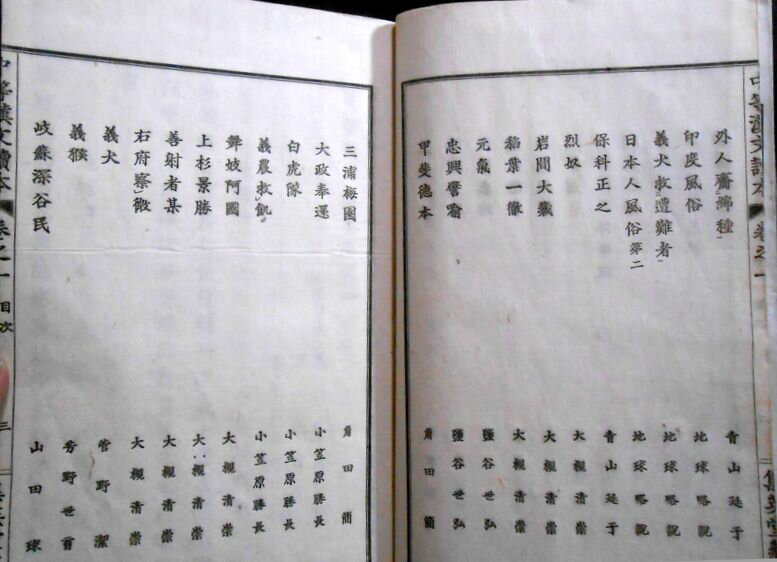 中等漢文讀本 卷之一
外人齎綿種 青山延于
印度風俗 地球略說
義犬救遭難者 地球略說
日本人風俗 第二 地球略說
保科正之 青山延于
烈奴 大槻清崇
岩間大藏 大槻清崇
稻葉一徹 大槻清崇
元氣 鹽谷世弘
忠興譬喻 鹽谷世弘
甲斐德本 角田簡
三浦梅園 角田簡
大政奉還 小笠原勝長
白虎隊 小笠原勝長
義農救飢 小笠原勝長
舞妓阿國 大槻清崇
上杉景勝 大槻清崇
善射者某 大槻清崇
右府察微 大槻清崇
義犬 菅野潔
義猴 芳野世育
岐蘇深谷民 山田球
中等漢文讀本 卷之一 目次 三